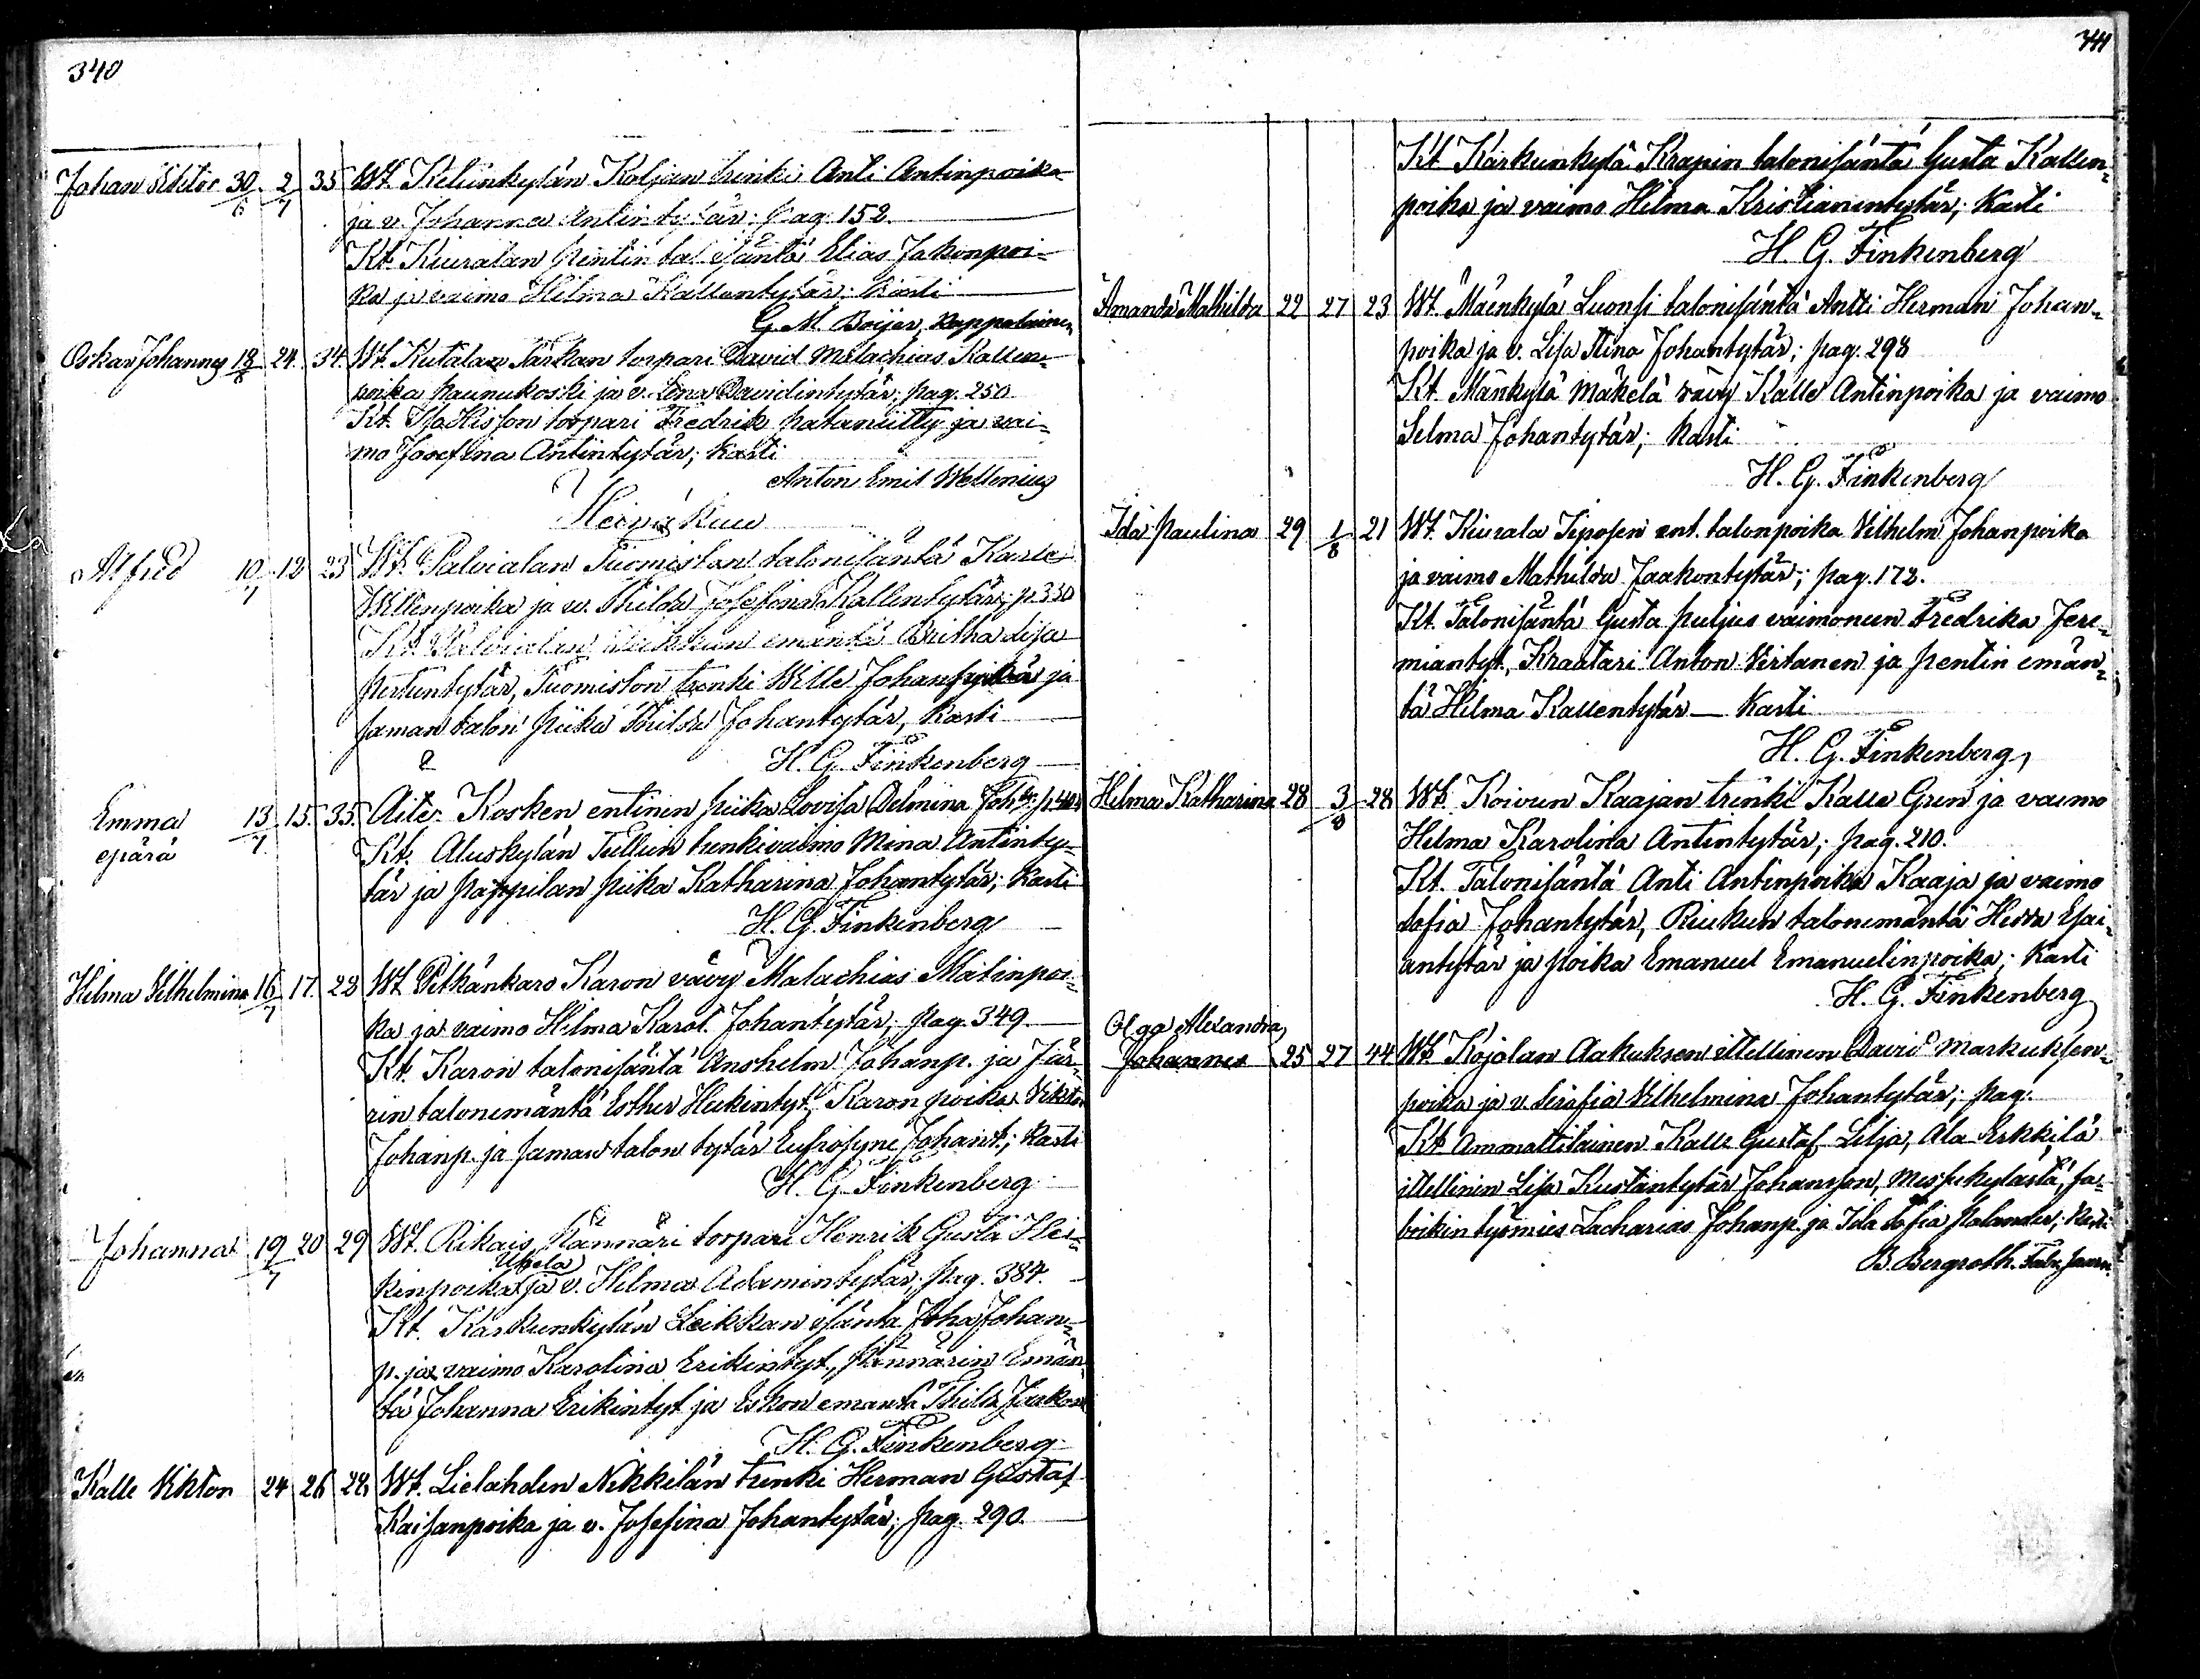 340
Johan Viktor 30/6 2/7 35 Wt. Keliinkylän Koljan trenki Anti Antinpoika
ja v. Johanna Antintytär; pag. 152.
Kt. Kiuralan Pentin tal. isäntä Elias Jakonpoi-
ka ja vaimo Hilma Kallentytär; Kasti
G. M. Boijer, Kappalainen
Oskar Johannes 18/6 24 34 Wt. Kutalan Tarkan torpari David Malachias Kallen-
poika Haunukoski ja v. Lena Davidintytär; pag. 250
Kt. torpari Fredrik Pataniitty ja vai-
mo Josefina Antintytär; Kasti
Anton Emil Wellenius
Heinäkuu
Alfred 10/7 12 23 Wt. Palvialan Tuomiston talonisäntä Kaarle
Willenpoika ja v. Thilda Josefina Kallentytär; p. 330
Kt. Palvialan emäntä Britha Lisa
Pertuntytär, Tuomiston trenki Wille Johanpoika ja
saman talon piika Thilda Johantytär, Kasti
H. G. Finkenberg
Emma 13/7 15 35 Äiti. Kosken entinen piika Lovisa Delmina Joh. t.
epärä Kt. Aluskylän Tullun trenkivaimo Mina Antinty-
tär ja Pappilan piika Katharina Johantytär; Kasti
H. G. Finkenberg
Hilma Vilhelmina 16/7 17 28 Wt. Pitkänkaro Karon vävy Malachias Matinpoi-
ka ja vaimo Hilma Karol. Johantytär; pag. 349.
Kt. Karon talonisäntä Anshelm Johanp. ja Jus-
rin talonemäntä Esther Heikintyt., Karon poika Viktor
Johanp. ja saman talon tytär Eufrosyne Johant.; Kasti
H. G. Finkenberg
Johanna 19/7 20 29 Wt. Rikais Männäri torpari Henrik Gusta Hei-
kinpoika Upola ja v. Hilma Adamintytär; pag. 384.
Kt. Karkunkylän Leikkan isäntä Juha Johan-
p. ja vaimo Karolina Erikintyt., Männärin Emän-
tä Johanna Erikintyt ja Eskon emäntä Thilda Jaakon
H. G. Finkenberg
Kalle Viktor 24 26 28 Wt. Lielahden Nikkilän trenki Herman Gustaf
Kaisanpoika ja v. Josefina Johantytär; pag. 290.
341
Kt. Karkunkylä Krapin talonisäntä Gusta Kallen-
poika ja vaimo Hilma Kristianintytär; Kasti
H. G. Finkenberg
Amanda Mathilda 22 27 23 Wt. Mäenkylä Luonsi talonisäntä Antti Herman Johan-
poika ja v. Lisa Stina Johantytär; pag. 298
Kt. Mänkylä Mäkelä vävy Kalle Antinpoika ja vaimo
Selma Johantytär; Kasti
H. G. Finkenberg
Ida Paulina 29 1/8 21 Wt. Kiurala Siposen ent. talonpoika Vilhelm Johanpoika
ja vaimo Mathilda Jaakontytär; pag. 172.
Kt. Talonisäntä Gusta Puljus vaimoneen Fredrika Jere-
miantyt., Kraatari Anton Virtanen ja Pentin emän-
tä Hilma Kallentytär — Kasti
H. G. Finkenberg
Hilma Katharina 28 3/8 28 Wt. Koivun Kaajan trenki Kalle Gren ja vaimo
Hilma Karolina Antintytär; pag. 210.
Kt. Talonisäntä Anti Antinpoika Kaaja ja vaimo
Sofia Johantytär, Riukun talonemäntä Hedda Esai-
antytär ja poika Emanuel Emanuelinpoika; Kasti
H. G. Finkenberg
Olga Alexandra
Johannes 25 27 44 Wt. Kojolan Aakuksen itellinen David Markuksen-
poika ja v. Serafia Vilhelmina Johantytär; pag.
Kt. Ammattilainen Kalle Gustaf Lilja, Ala Erkkilä
itellinen Lisa Kustantytär Johansson, Meskekylästä, Fa-
brikin työmies Zacharias Johanp. ja Ida Sofia Palander; Kasti
B. Bergroth. Fabr. saarn.